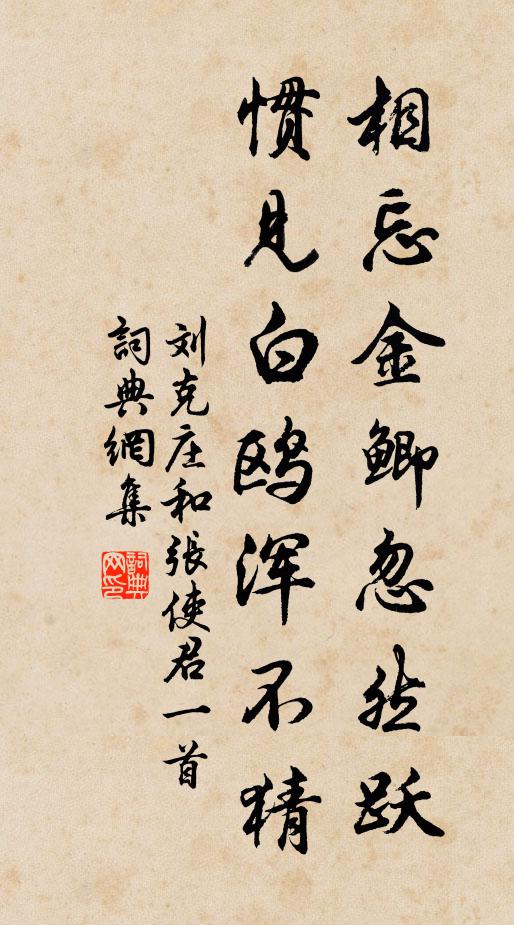 相忘金鲫忽然跃
惯见白鸥浑不猜
刘克庄和張使君一首
詞典網集
詞典网印